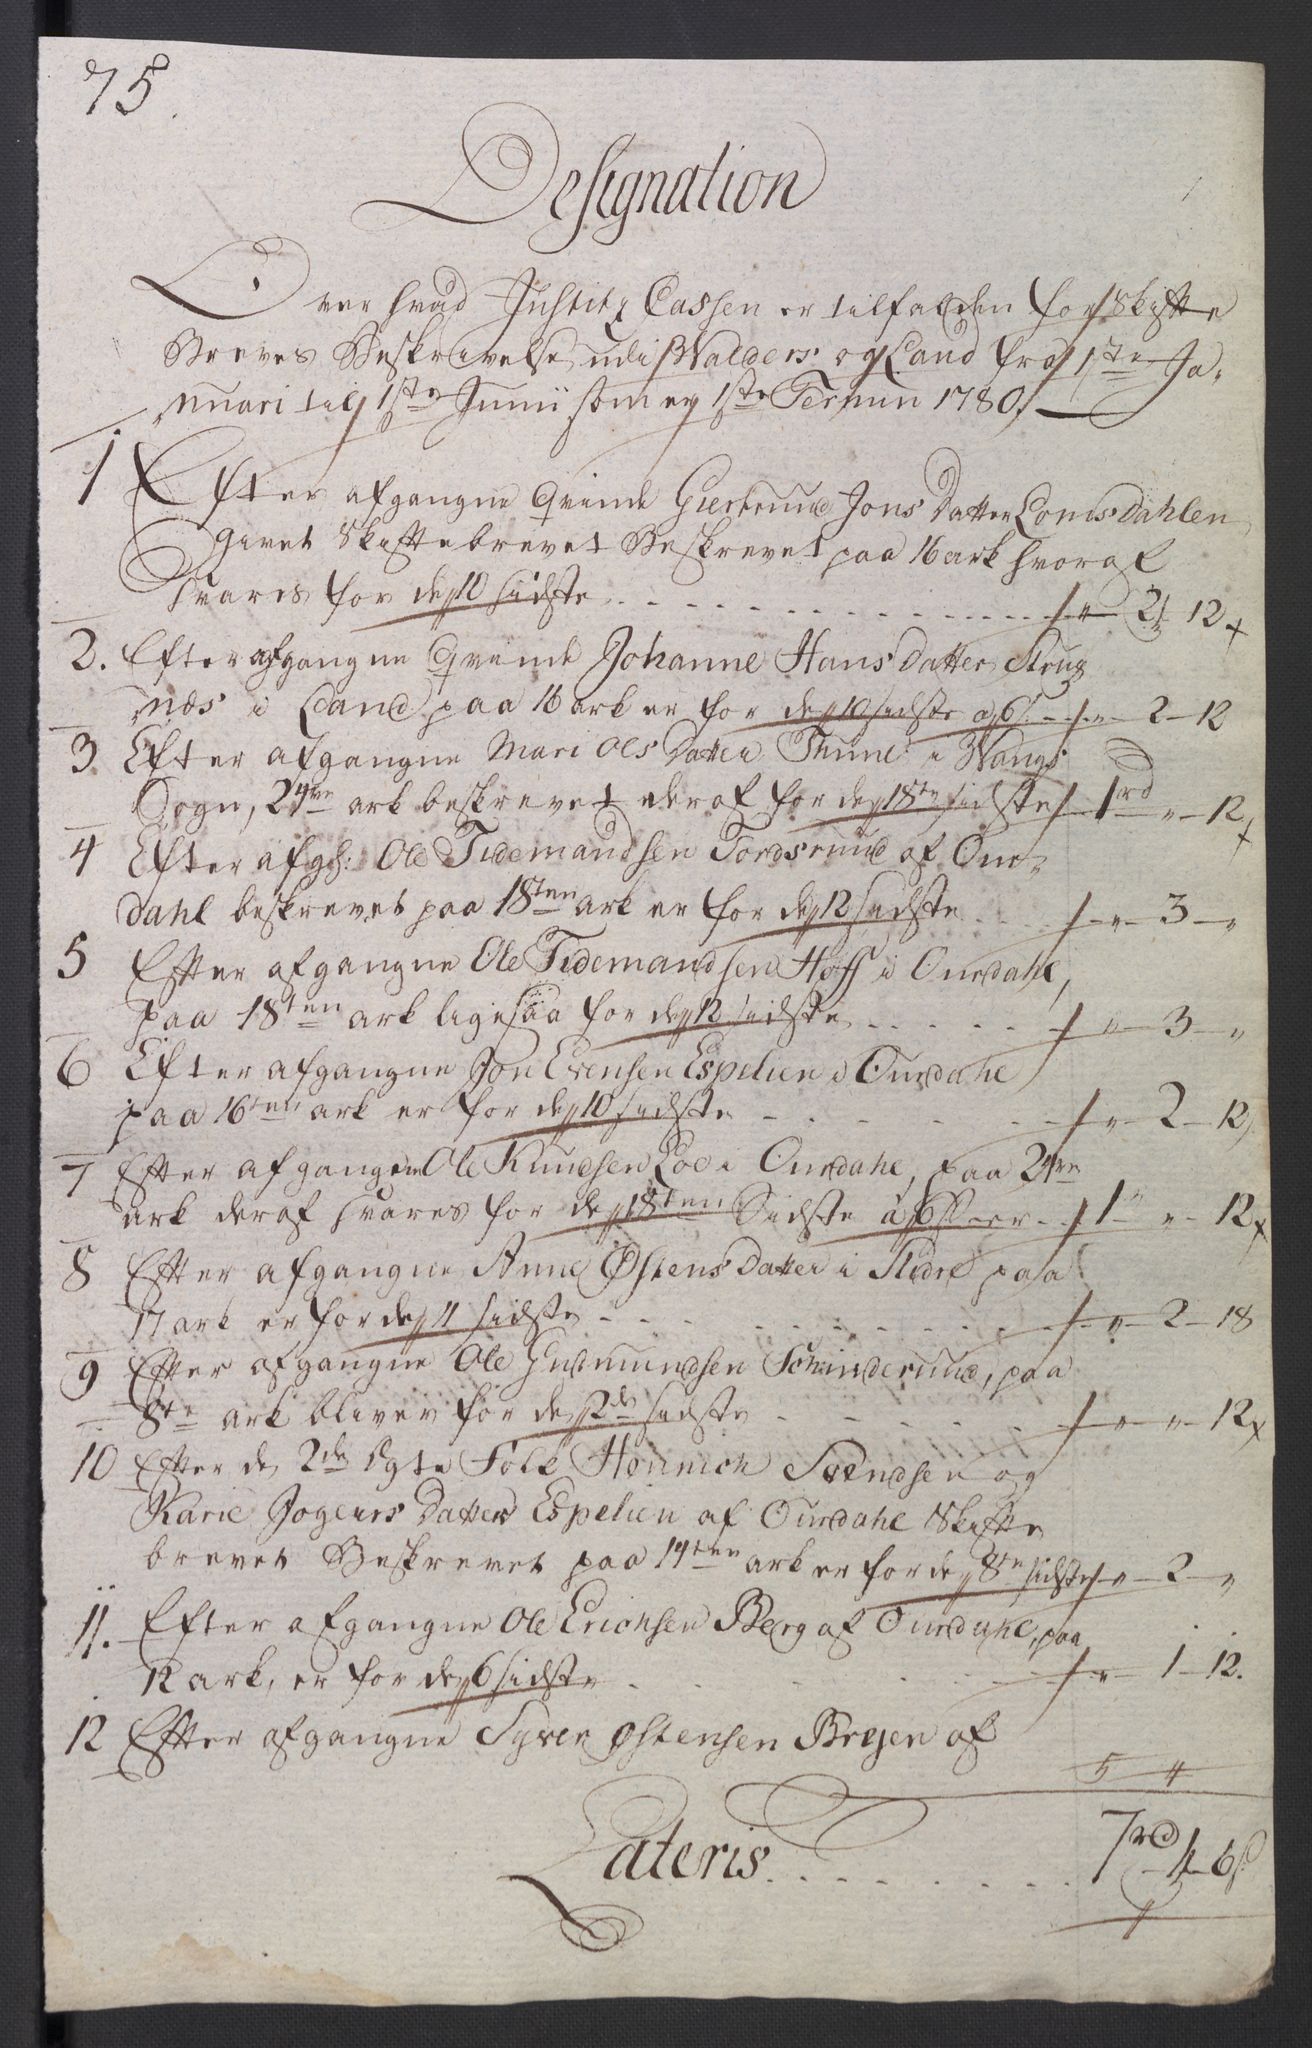 75.
Designation
Over hvad Justitz Cassen er tilfalden for Skifte
Breves Beskrivelse udi Walders og Land fra 1ste Ja-
nuari til 1ste Junii som er 1ste Termin 1780.
1 Efter afgangne Qvinde Giertruud Jons Datter Lomsdahlen
Givet Skiftebrevet Beskrevet paa 16 ark hvoraf
svares for de 10 sidste . . . . " 2 12
2. Efter afgangne Qvinde Johanne Hans Datter Strug
næs i Land paa 16 ark er for de 10 sidste a 6 s. - " - 2 - 12
3 Efter afgangne Mari Ols Datter Thune i Wangs
Sogn, 24re ark beskrevet deraf for de 18te sidste 1rd " - 12
4 Efter afg: Ole Tidemandsen Tordsruud af Our-
dahl beskrevet paa 18ten ark er for de 12 sidste . . - " - 3 - "
5 Efter afgangne Ole Tidemandsen Hoff i Ourdahl,
paa 18ten ark ligesaa for de 12 sidste . . . . - " - 3 - "
6 Efter afgangne Jon Evensen Espelien i Ourdahl
paa 16ten ark er for de 10 sidste - . . . - " - 2 - 12
7 Efter afgangne Ole Knudsen Loe i Ourdahl, paa 24re
ark deraf svares for de 18ten Sidste a 6 s er - 1 - " - 12
8 Efter afgangne Anne Østens Datter i Slidre paa
17 ark er for de 11 sidste - . . . . - " - 2 - 18
9 Efter afgangne Ole Gudmundsen Schinderuud, paa
8te ark bliver for de 2de sidste - . . . - " - " - 12
10 Efter de 2de Egte Folk Hennich Svendsen og
Karie Jogeurs Datter Espelien af Ourdahl Skifte
brevet Beskrevet paa 14ten ark er for de 8te sidste - " - 2 - "
11. Efter afgangne Ole Erichsen Berg af Ourdahl, paa
12 ark, er for de 6 sidste . . . . - " - 1 - 12.
12 Efter afgangne Syver Østensen Breyen af
5 "
Lateris . . . . 7rd - 1 - 6 s